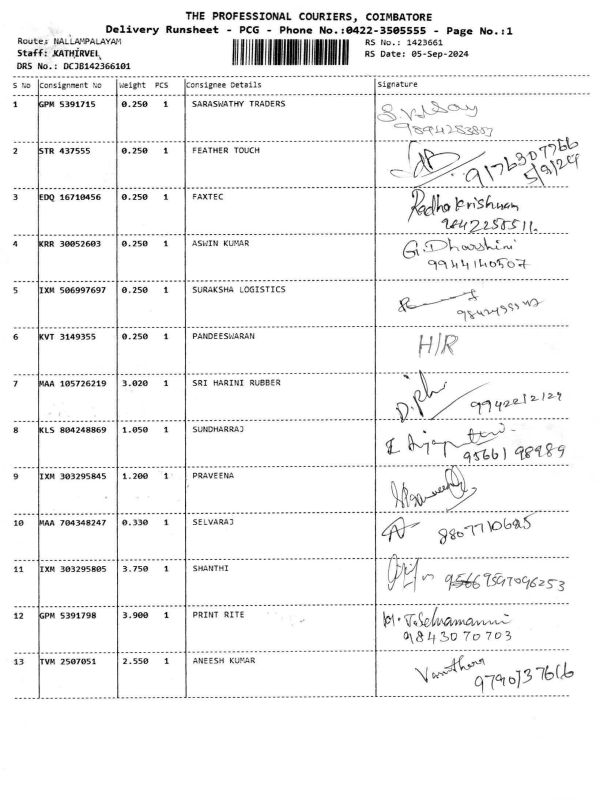 THE PROFESSIONAL COURIERS, COIMBATORE
Delivery Runsheet - PCG - Phone No.:0422-3505555 - Page No.:1
Route: NALLAMPALAYAM
Staff: KATHIRVEL
DRS No.: DCJB142366101
RS No.: 1423661
RS Date: 05-Sep-2024
S No Consignment No Weight PCS Consignee Details Signature
1 GPM 5391715 0.250 1 SARASWATHY TRADERS
2 STR 437555 0.250 1 FEATHER TOUCH
9176307766
5/9/24
3 EDQ 16710456 0.250 1 FAXTEC Radhakrishnan
4 KRR 30052603 0.250 1 ASWIN KUMAR G. Dharshini
9944140507
5 IXM 506997697 0.250 1 SURAKSHA LOGISTICS
6 KVT 3149355 0.250 1 PANDEESWARAN H/R
7 MAA 105726219 3.020 1 SRI HARINI RUBBER
8 KLS 804248869 1.050 1 SUNDHARRAJ
9566198989
9 IXM 303295845 1.200 1 PRAVEENA
10 MAA 704348247 0.330 1 SELVARAJ 8807710685
11 IXM 303295805 3.750 1 SHANTHI
12 GPM 5391798 3.900 1 PRINT RITE
9843070703
13 TVM 2507051 2.550 1 ANEESH KUMAR